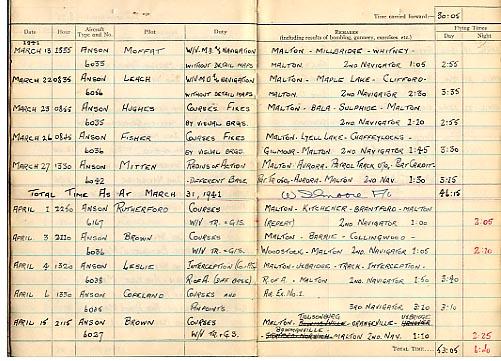 Time carried forward:— 30:05
Date Hour Aircraft Type and No. Pilot Duty REMARKS (including results of bombing, gunnery, exercises, etc.) Flying Times Day Night
1941
MARCH 13 1855 ANSON MOFFAT W/V. M.D. & NAVIGATION MALTON - MILLBRIDGE - WHITNEY -
6035 WITHOUT DETAIL MAPS MALTON 2ND NAVIGATOR 1:05 2:55
MARCH 22 0835 ANSON LEACH W/V M.D & NAVIGATION MALTON - MAPLE LAKE - CLIFFORD -
6056 WITHOUT DETAIL MAPS. MALTON 2ND NAVIGATOR 2:30 3:35
MARCH 23 0845 ANSON HUGHES COURSES FIXES MALTON - BALA - SULPHIDE - MALTON
6035 BY VISUAL BRGS. 2ND NAVIGATOR 1:10 2:55
MARCH 26 0845 ANSON FISHER COURSES FIXES MALTON - LYELL LAKE - CHAFFEYLOCKS -
6036 BY VISUAL BRGS. GILMOUR - MALTON 2ND NAVIGATOR 1:45 3:30
MARCH 27 1330 ANSON MITTEN RADIUS OF ACTION MALTON - AURORA - PATROL TRACK - PORT CREDIT -
6042 - DIFFERENT BASE AURORA - MALTON 2ND NAV. 1:30 3:15
TOTAL TIME AS AT MARCH 31, 1941 F/O 46:15
APRIL 1 2250 ANSON RUTHERFORD COURSES MALTON - KITCHENER - BRANTFORD - MALTON
6167 W/V TR. & G/S. (REPEAT) 2ND NAVIGATOR 1:00 2:05
APRIL 3 2110 ANSON BROWN COURSES MALTON - BARRIE - COLLINGWOOD -
6036 W/V TR. & G/S. WOODSTOCK - MALTON 2ND NAVIGATOR 1:05 2:10
APRIL 4 1320 ANSON LESLIE INTERCEPTION MALTON - UXBRIDGE - TRACK - INTERCEPTION -
6038 R of A. (SAME BASE) R of A - MALTON 2ND NAVIGATOR 1:50 3:40
APRIL 6 1330 ANSON COPELAND COURSES AND AR. EX. NO. 1
PINPOINTS 3RD NAVIGATOR 3:10 3:10
APRIL 15 2115 ANSON BROWN COURSES MALTON - TILLSONBURG - ORANGEVILLE - UXBRIDGE
6027 W/V TR. & G.S. BOWMANVILLE - MALTON 2ND NAV. 1:10 2:25
TOTAL TIME 53:05